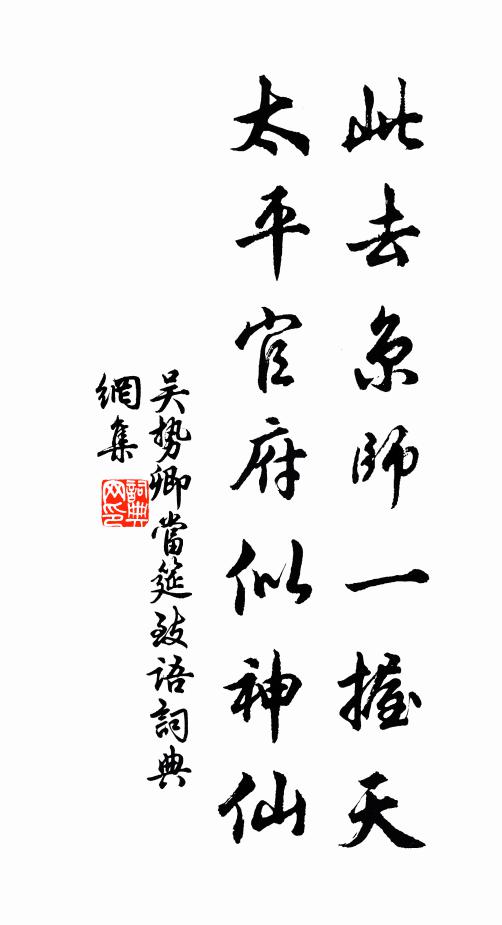 此去京師一握天
太平官府似神仙
吴势卿當筵致語詞典
網集
詞典網印